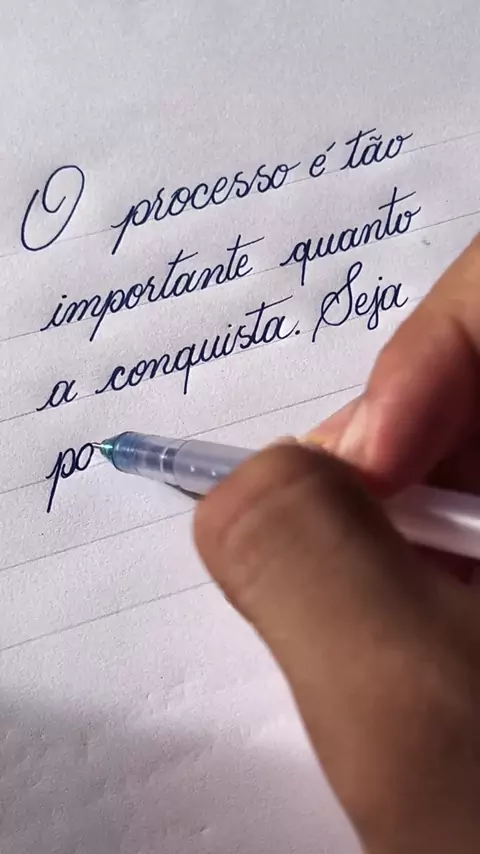 O processo é tão
importante quanto
a conquista. Seja
po